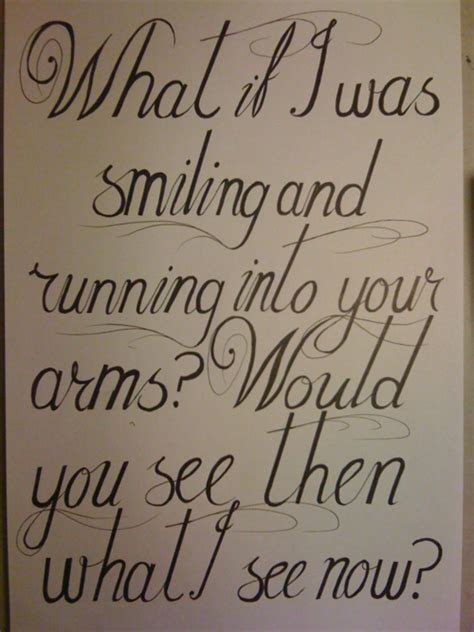 What if I was
smiling and
running into your
arms? Would
you see, then
what I see now?